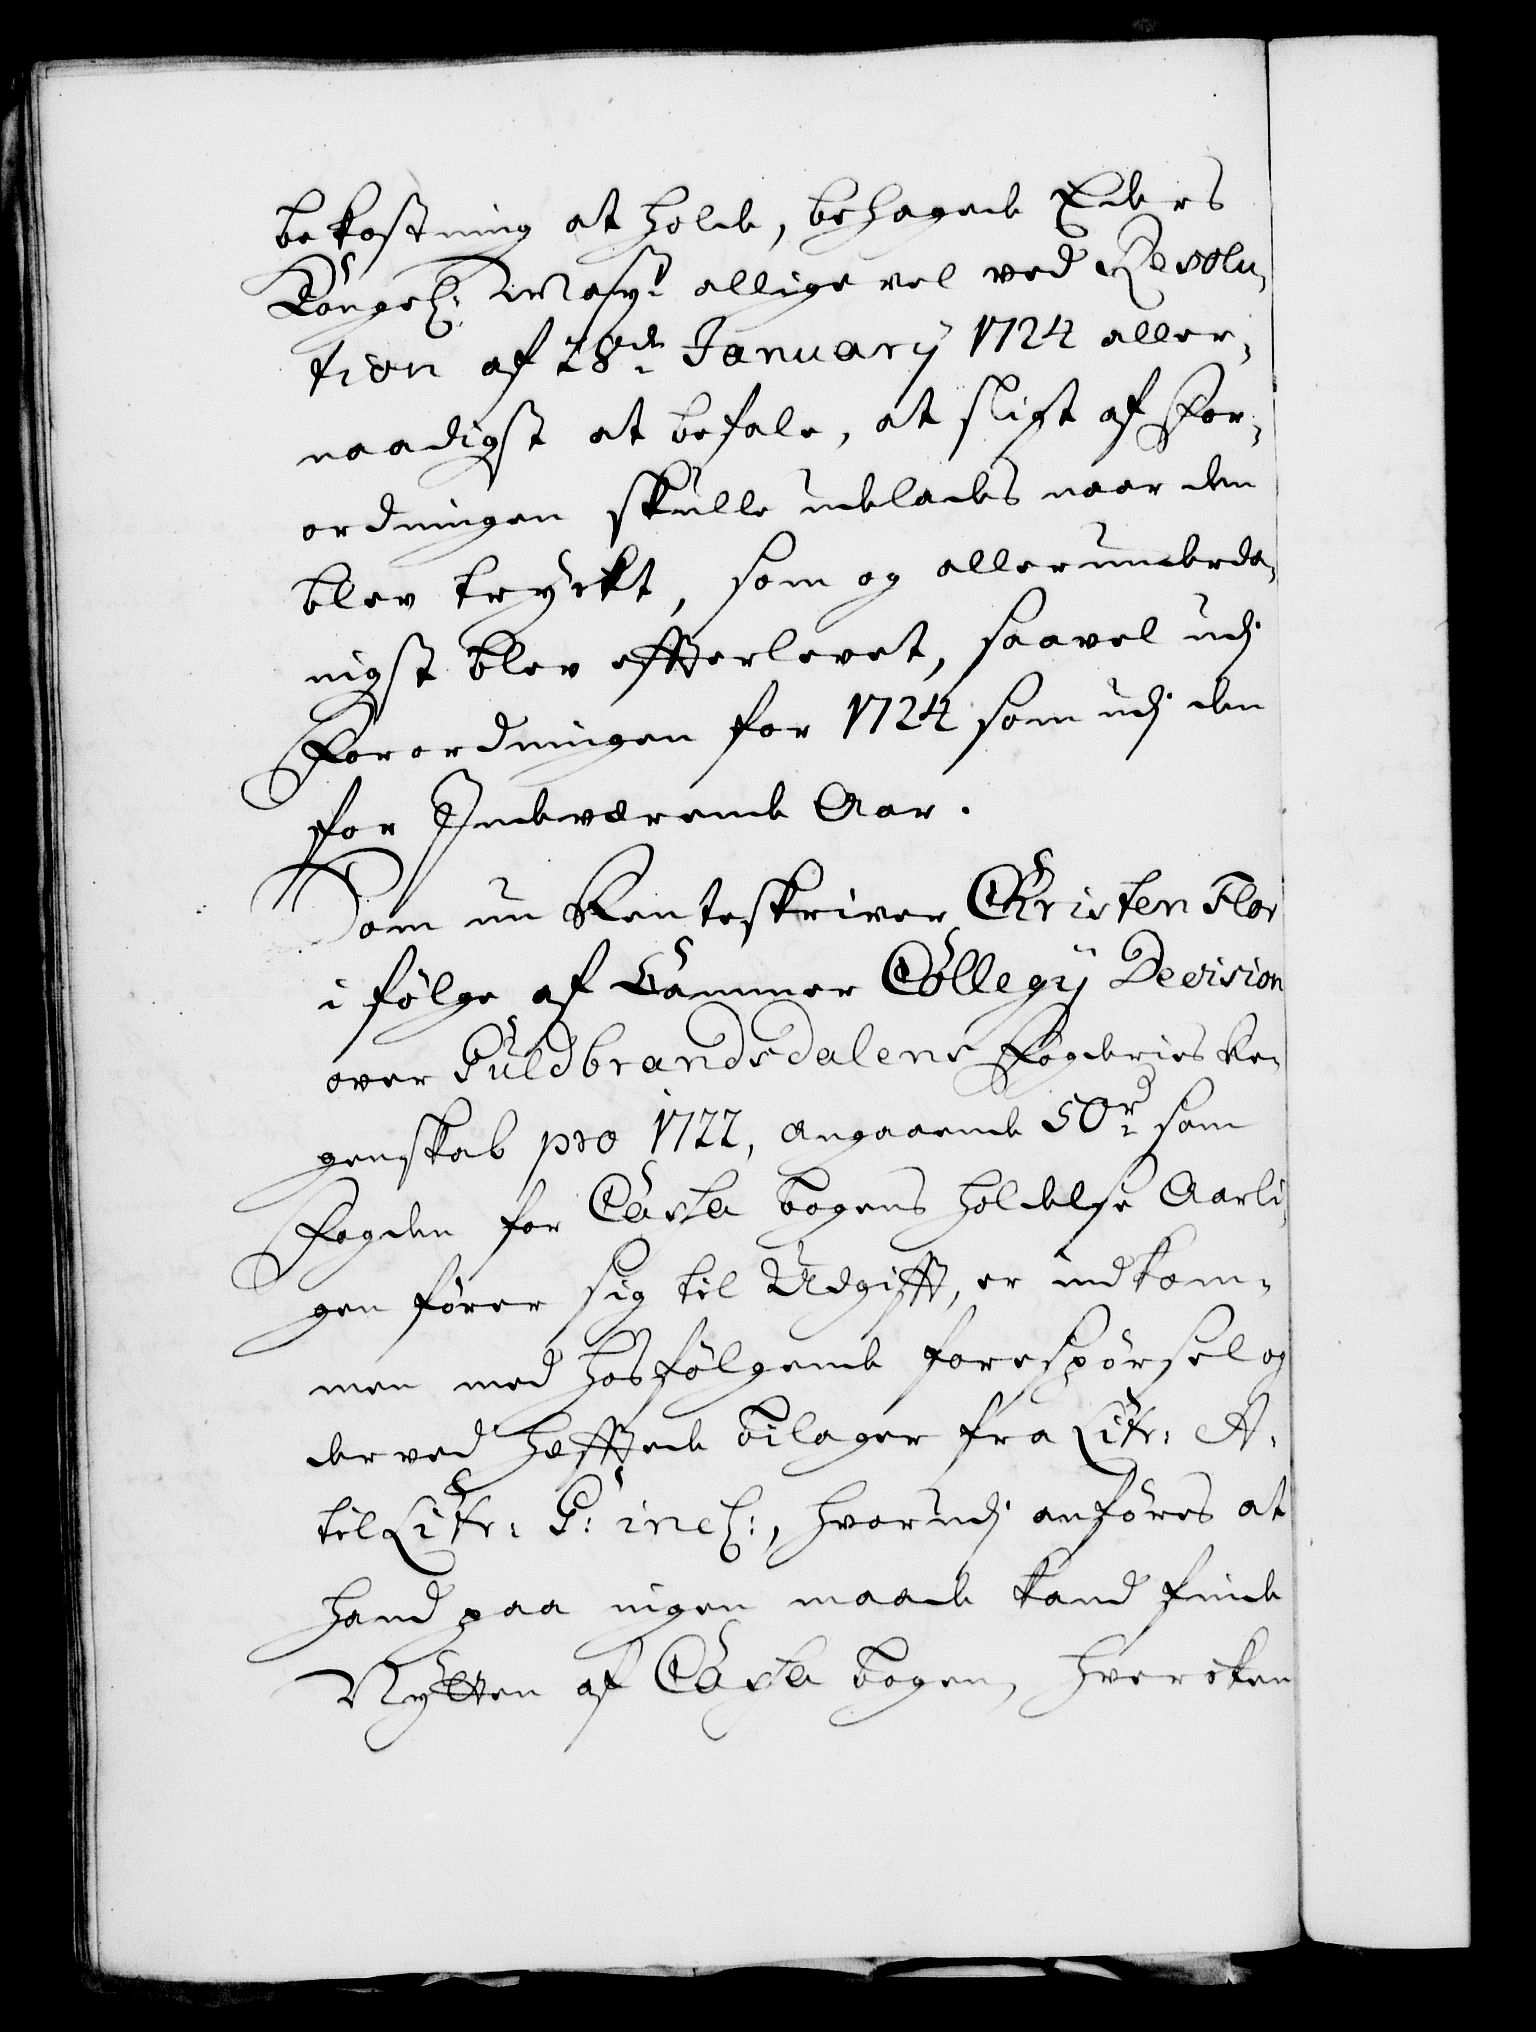 bekostning at holde, behagede Eders
Kongel: Mayt: allige vel ved Resolu,
tion af 28de January 1724 aller,
naadigst at befale, at sligt af For,
ordningen skulle udelades naar den
blev tryckt, som og allerunderda,
nigst blev effterlevet, saavel udj
Forordningen for 1724 som udj den
for Indeværende Aar.
Som nu Renteskriver Christen Flor
i følge af Cammer Collegij Decision
over Guldbrandsdalens Fogderies Re,
genskab pro 1722, angaaende 50 rd: som
Fogden for Cassa bogens holdelse Aarli,
gen fører sig til Udgifft, er indkom,
men med hosfølgende forespørsel og
derved hefftede bilager fra Litr: A.
til Litr: G: incl:, hvorudj anføres at
hand paa ingen maade kand finde
Nytten af Cassa bogen, hvercken